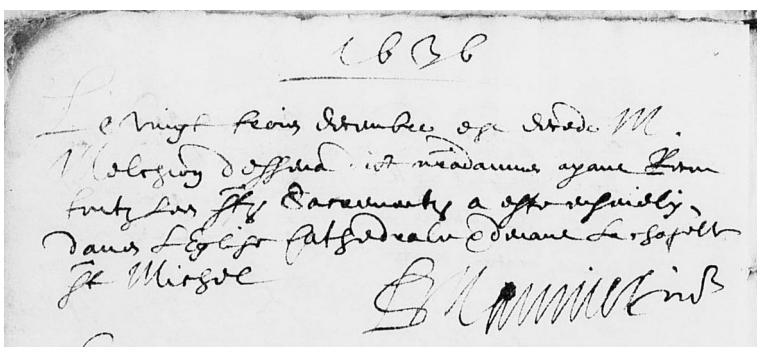 1636
Le vingt trois decembre est decedé M.
Melchion ayant Receu
toutz les Stz Sacrements a esté ensevely
dans l'Eglise Cathedrale devant la chapelle
St Michel